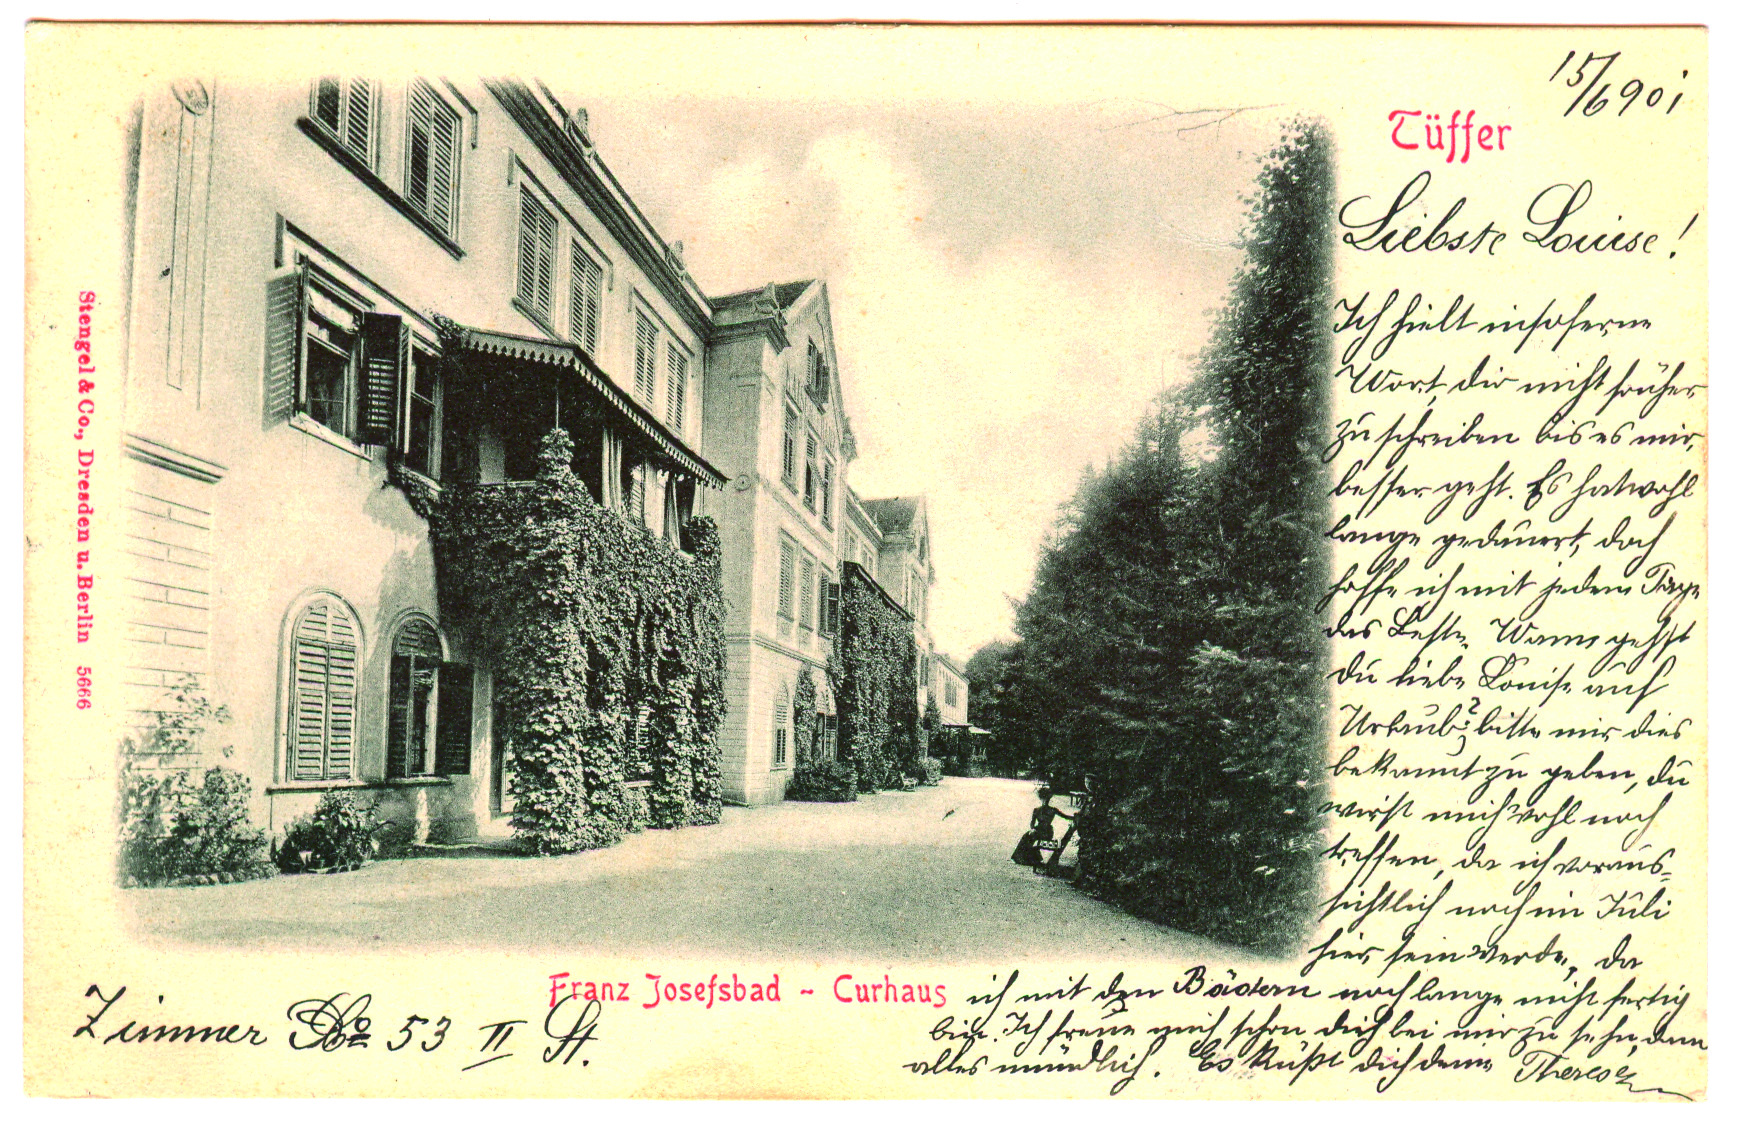 15/6 901
Tüffer
Liebste Louise!
Ich hielt insoferne
Wort, dir nicht früher
zu schreiben bis es mir
besser geht. Es hat wohl
lange gedauert, doch
hoffe ich mit jedem Tage
das Beste. Wann gehst
du liebe Louise auf
Urlaub? bitte mir dies
bekannt zu geben, du
wirst mich wohl noch
treffen, da ich voraus=
sichtlich noch im Juli
hier sein werde, da
ich mit den Bädern noch lange nicht fertig
bin. Ich freue mich schon dich bei mir zu sehn, dann
alles mündlich. Es küßt dich deine Therese
Franz Josefsbad - Curhaus
Zimmer No 53 II St.
Stengel & Co., Dresden u. Berlin 5666